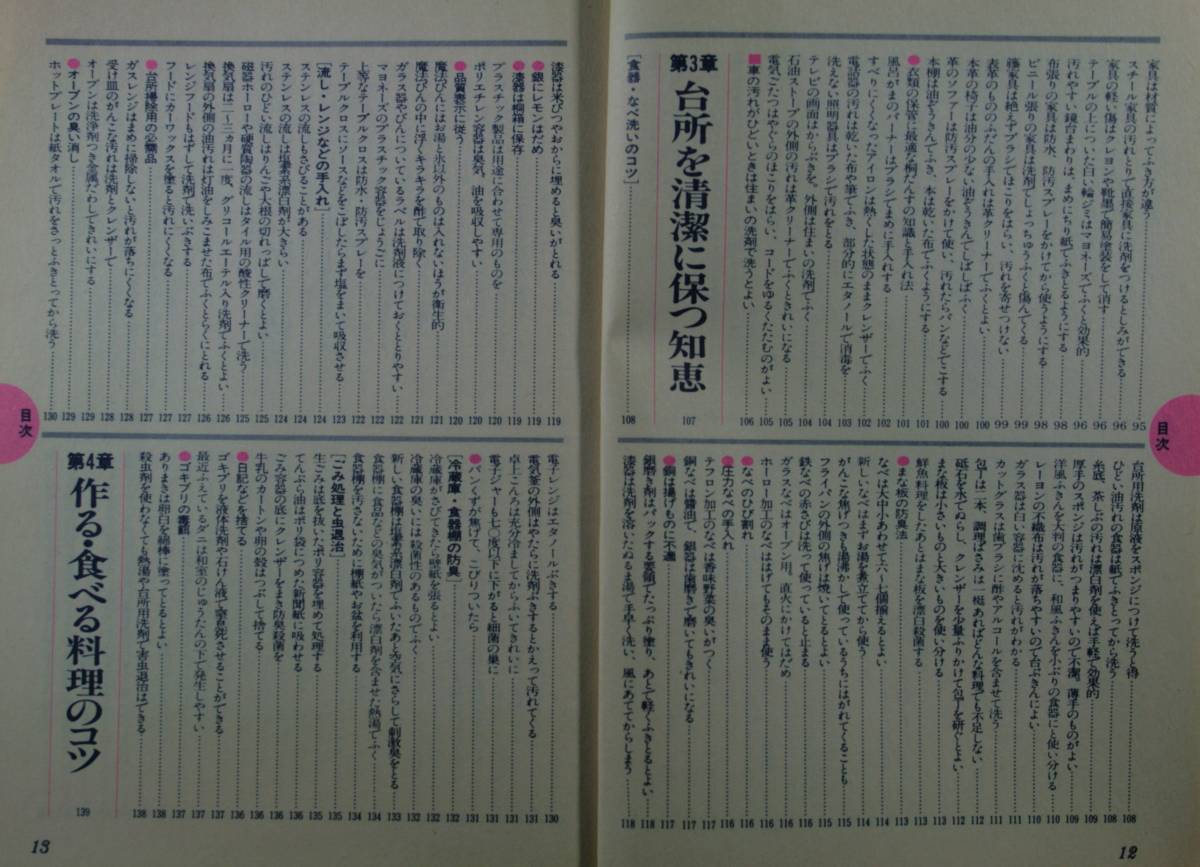 目次
家具は材質によってふき方が違う 95
スチール家具の汚れとり、直接家具に洗剤をつけるとしみができる 96
家具の軽い傷はクレヨンや靴墨で簡易塗装をして消す 96
テーブルの上についた白い輪ジミはマヨネーズでふくと効果的 96
汚れやすい鏡台まわりは、まめにちり紙でふきとるようにする 96
布張りの家具は防水、防汚スプレーをかけてから使うようにする 98
ビニール張りの家具は洗剤でしょっちゅうふくと傷んでくる 98
籐家具は絶えずブラシでほこりをはらい、汚れを寄せつけない 99
表革のもののふだんの手入れは革クリーナーでふくとよい 99
本革の椅子は油分の少ない油ぞうきんでしばしばふく 100
革のソファーは防汚スプレーをかけて使い、汚れたらパンなどでこする 100
本棚は油ぞうきんでふき、本は乾いた布でふくようにする 100
●衣類の保管に最適な桐だんすの知識と手入れ法 101
風呂がまのバーナーはブラシでまめに手入れする
すべりにくくなったアイロンは熱くした状態のままクレンザーでふく 102
電話器の汚れは乾いた布や筆でふき、部分的にエタノールで消毒を 102
洗えない照明器具はブラシで汚れをとる
テレビの画面はからぶきを。外側は住まいの洗剤でふく 104
石油ストーブの外側の汚れは革クリーナーでふくときれいになる 104
電気ごたつはやぐらのほこりをはらい、コードをゆるくたたむのがよい 105
■車の汚れがひどいときは住まいの洗剤で洗うとよい 106
第3章 台所を清潔に保つ知恵 107
[食器・なべ洗いのコツ] 108
台所用洗剤は原液をスポンジにつけて洗うと得 108
ひどい油汚れの食器は紙でふきとってから洗う 108
糸底、茶しぶの汚れは漂白剤を使えば手軽で効果的 108
厚手のスポンジは汚れがつまりやすいので不潔。薄手のものがよい 109
洋風ふきんを大判の食器に、和風ふきんを小ぶりの食器にと使い分ける 110
レーヨンの不織布は汚れが落ちやすいので台ぶきんによい 110
ガラス器は白い容器に沈めると汚れがわかる 111
カットグラスは歯ブラシに酢やアルコールを含ませて洗う 111
包丁は二本、調理ばさみは一梃あればどんな料理でも不足しない 111
砥石を水でぬらし、クレンザーを少量ふりかけて包丁を研ぐとよい 112
まな板は小さいものと大きいものを使い分ける 112
鮮魚料理をしたあとはまな板を漂白殺菌する 113
●まな板の防臭法 113
なべは大中小あわせて六〜七個揃えるとよい 114
新しいなべはまずお湯を煮立ててから使う 114
がんこな焦げつきも湯沸かしで使っているうちにはがれてくることも 115
フライパンの外側の焦げは焼いてとるとよい 115
鉄なべの赤さびは洗って使っていると止まる 115
ガラスなべはオーブン用。直火にかけてはだめ 116
ホーロー加工のなべははげてもそのまま使う 116
●なべのひび割れ 116
●圧力なべの手入れ 116
テフロン加工のなべは香味野菜の臭いがつく 117
銅なべは醤油で、銀器は歯磨きで磨いてもきれいになる 117
●銅は揚げものに不適 117
銀磨き剤はパックする要領でたっぷり塗り、あとで軽くふきとるとよい 118
漆器は洗剤を溶いたぬるま湯で手早く洗い、風にあててからしまう 118
12
漆器は米びつやおからに埋めると臭いがとれる 119
●銀にレモンはだめ 119
●漆器は桐箱に保存 119
プラスチック製品は用途に合わせて専用のものを 120
ポリエチレン容器は臭気、油を吸収しやすい 120
●品質表示に従う 120
魔法びんにはお湯と氷以外のものは入れないほうが衛生的 121
魔法びんの中に浮くキラキラを酢で取り除く 121
ガラス器やびんについているラベルは洗剤液につけておくととりやすい 122
マヨネーズのプラスチック容器をじょうごに 122
上等なテーブルクロスには防水・防汚スプレーを 122
テーブルクロスにソースなどをこぼしたらまず塩をまいて吸収させる 123
[流し・レンジなどの手入れ] 124
ステンレスの流しもさびることがある 124
ステンレスの流しは塩素系漂白剤が大きらい 124
汚れのひどい流しはりんごや大根の切れっぱしで磨くとよい 125
磁器ホーローや硬質陶器の流しはタイル用の酸性クリーナーで洗う 125
換気扇は二〜三カ月に一度、グリコールエーテル入り洗剤でふくとよい 126
換気扇の外側の油汚れは灯油をしみこませた布でふくとらくにとれる 126
レンジフードもはずして洗剤で洗いぶきする 127
フードにカーワックスを塗ると汚れにくくなる 127
●台所掃除用の必需品 127
ガスレンジはまめに掃除しないと汚れが落ちにくくなる 128
受け皿のがんこな汚れは洗剤とクレンザーで 128
オーブンは洗浄剤つき金属たわしできれいにする 129
●オーブンの臭い消し 129
ホットプレートは紙タオルで汚れをさっとふきとってから洗う 130
電子レンジはエタノールぶきする 130
電気釜の外側はやたらに洗剤ぶきするとかえって汚れてくる 131
卓上こんろは充分さましてからふいてきれいに 131
電子ジャーも七〇度以下に下がると細菌の巣に 131
●パンくずが焦げて、こびりついたら 131
[冷蔵庫・食器棚の防臭] 132
冷蔵庫がさびてきたら壁紙を張るとよい 132
冷蔵庫の臭いには殺菌性のあるものでふく
新しい食器棚は塩素系漂白剤でふいたあと空気にさらして刺激臭をとる 133
食器棚に食品などの臭気がついたら漂白剤を含ませた熱湯でふく 133
食器棚を汚さないために棚紙やお盆を利用する 134
[ごみ処理と虫退治]
生ごみは底を抜いたポリ容器を埋めて処理する
てんぷら油はポリ袋につめた新聞紙に吸わせる 135
ごみ容器の底にクレンザーをまき防臭殺菌を 136
牛乳のカートンや卵の殻はつぶして捨てる 136
●日記などを捨てる 136
ゴキブリを液体洗剤や石けん液で窒息死させることができる 137
最近ふえているダニは和室のじゅうたんの下で発生しやすい 137
●ゴキブリの毒餌 137
ありまきは卵白を綿棒に塗ってとるとよい 138
殺虫剤を使わなくても熱湯や台所用洗剤で害虫退治はできる 138
第4章 作る・食べる料理のコツ 139
目次
13